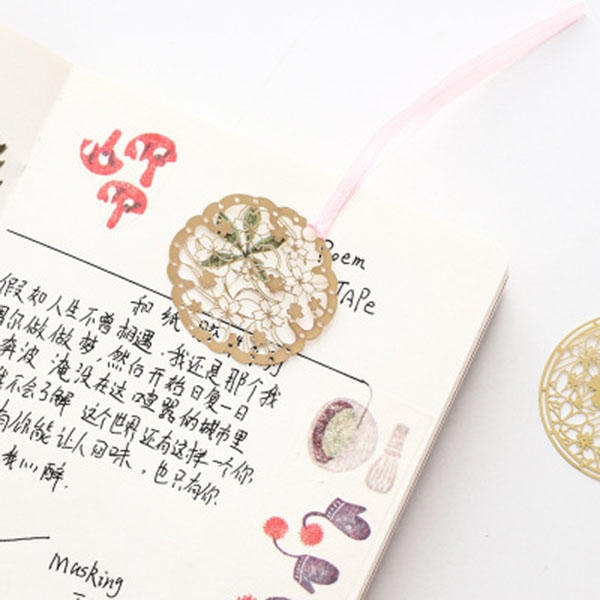 Poem
TAPe
和纸
假如人生不曾相遇，我还是那个我
偶尔做做梦，然后开始日复一日
奔波，淹没在这喧嚣的城市里
不会了解，这个世界还有这样一个你
有你能让人回味，也只有你
我心醉.
Masking